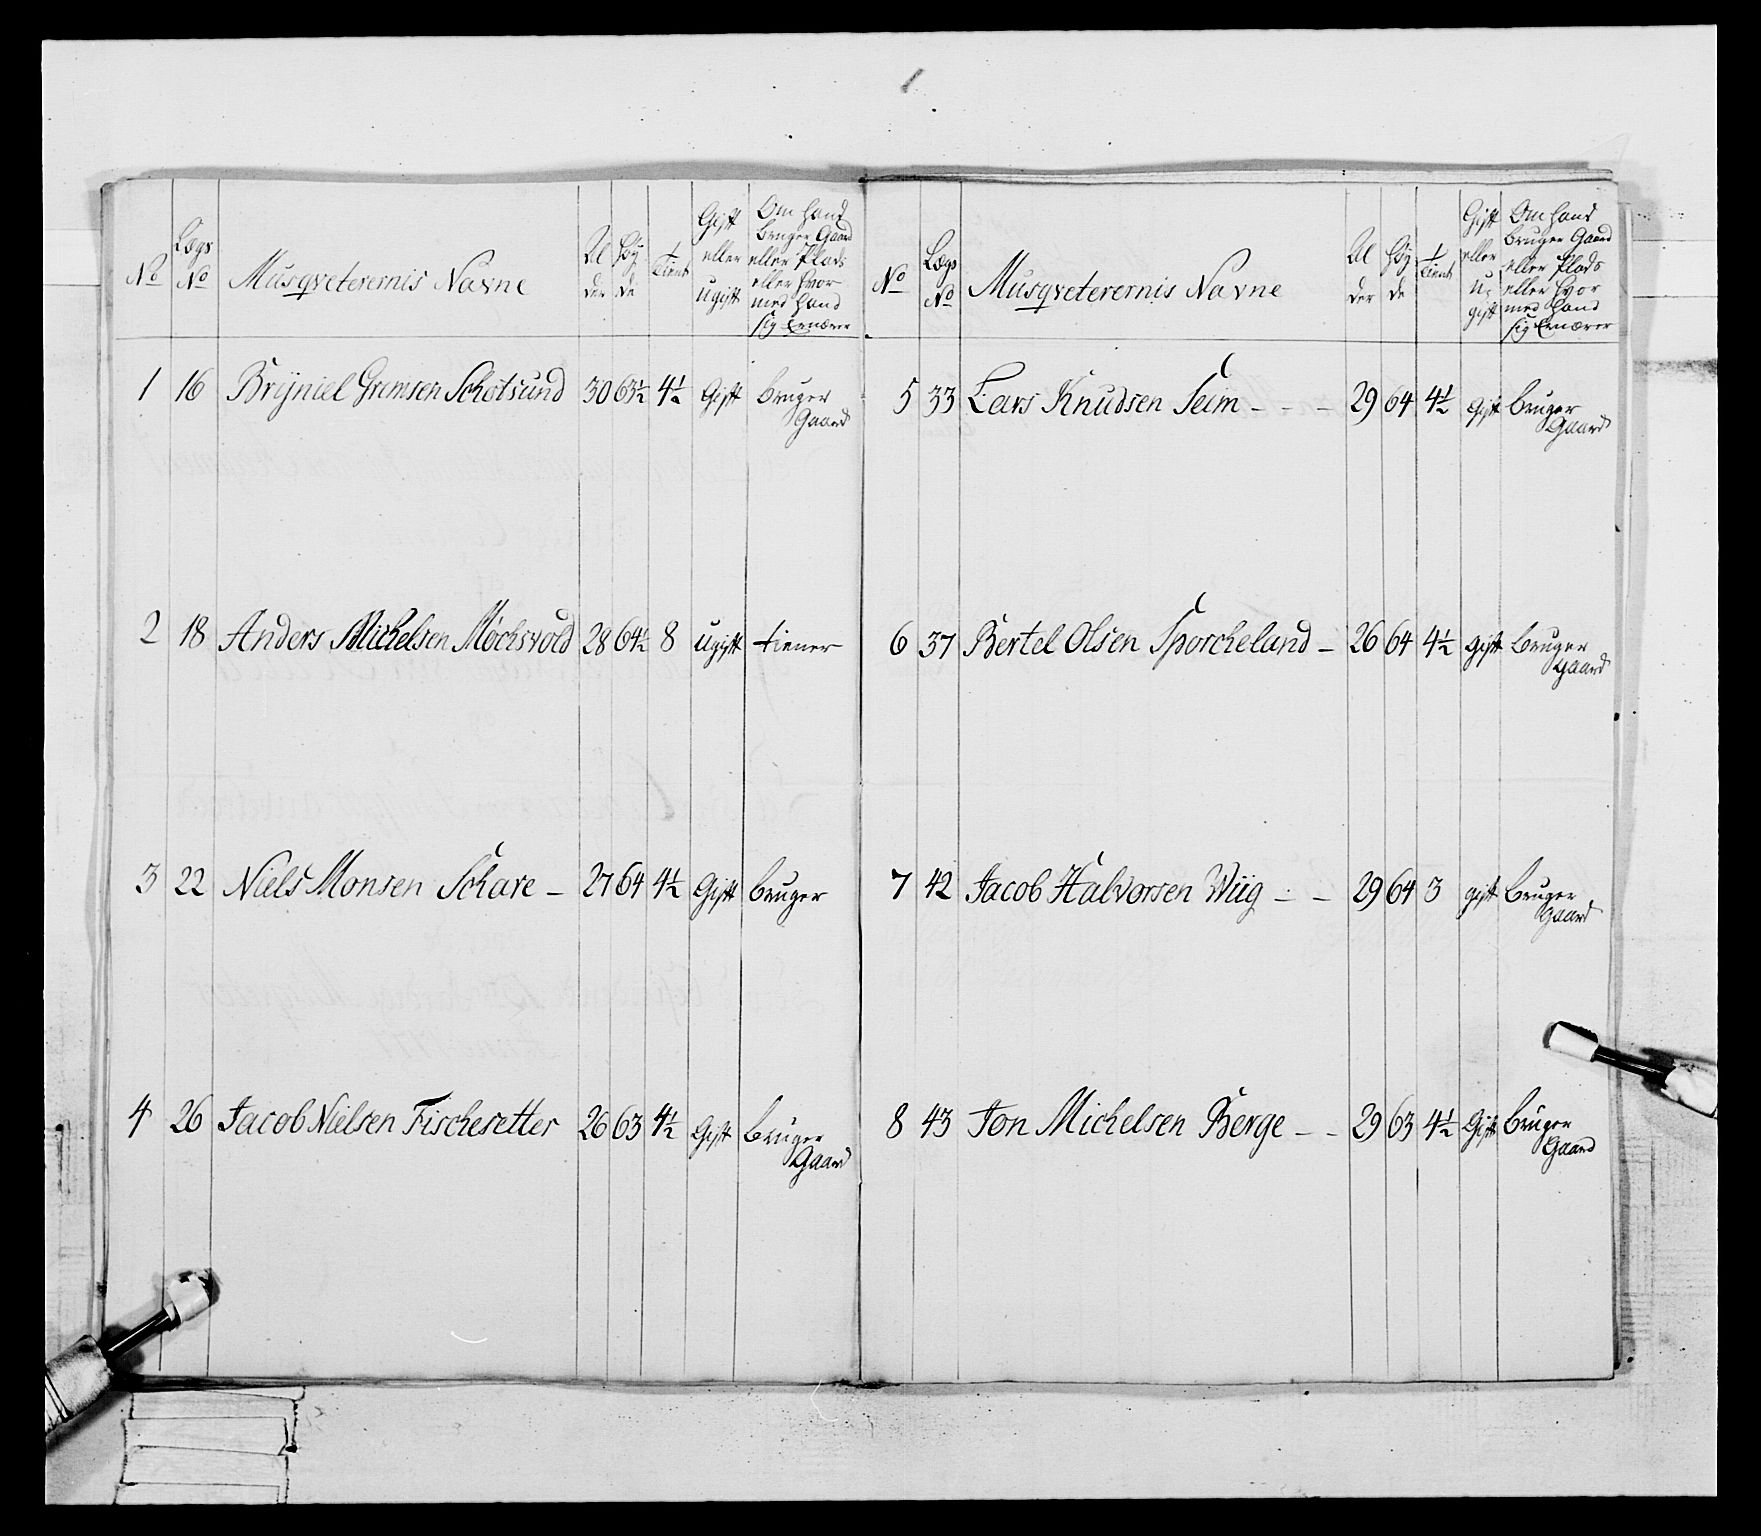 No
Lægs No
Musqveterernis Navne
Alder
Høyde
Tient
Gift eller Ugift
Om Hand bruger Gaard eller Plads eller hvor med Hand sig Ernærer
1 16 Brÿniel Gromsen Schotsund 30 63½ 4½ Gift bruger
Gaard
2 18 Anders Michelsen Møchsvold 28 64½ 8 Ugift tiener
3 22 Niels Monsen Schare – 27 64 4½ Gift bruger
4 26 Jacob Nielsen Fischesetter 26 63 4½ Gift bruger
Gaard
No
Lægs No
Musqveterernis Navne
Alder
Høyde
Tient
Gift eller U: gift
Om Hand bruger Gaard eller Plads eller hvor med Hand sig Ernærer
5 33 Lars Knudsen Seim – – – 29 64 4½ Gift bruger
Gaard
6 37 Bertel Olsen Sporcheland – 26 64 4½ gift bruger
gaard
7 42 Jacob Halvorsen Wiig – – 29 64 3 gift bruger
gaard
8 43 Jon Michelsen Berge – – 29 63 4½ Gift bruger
Gaard